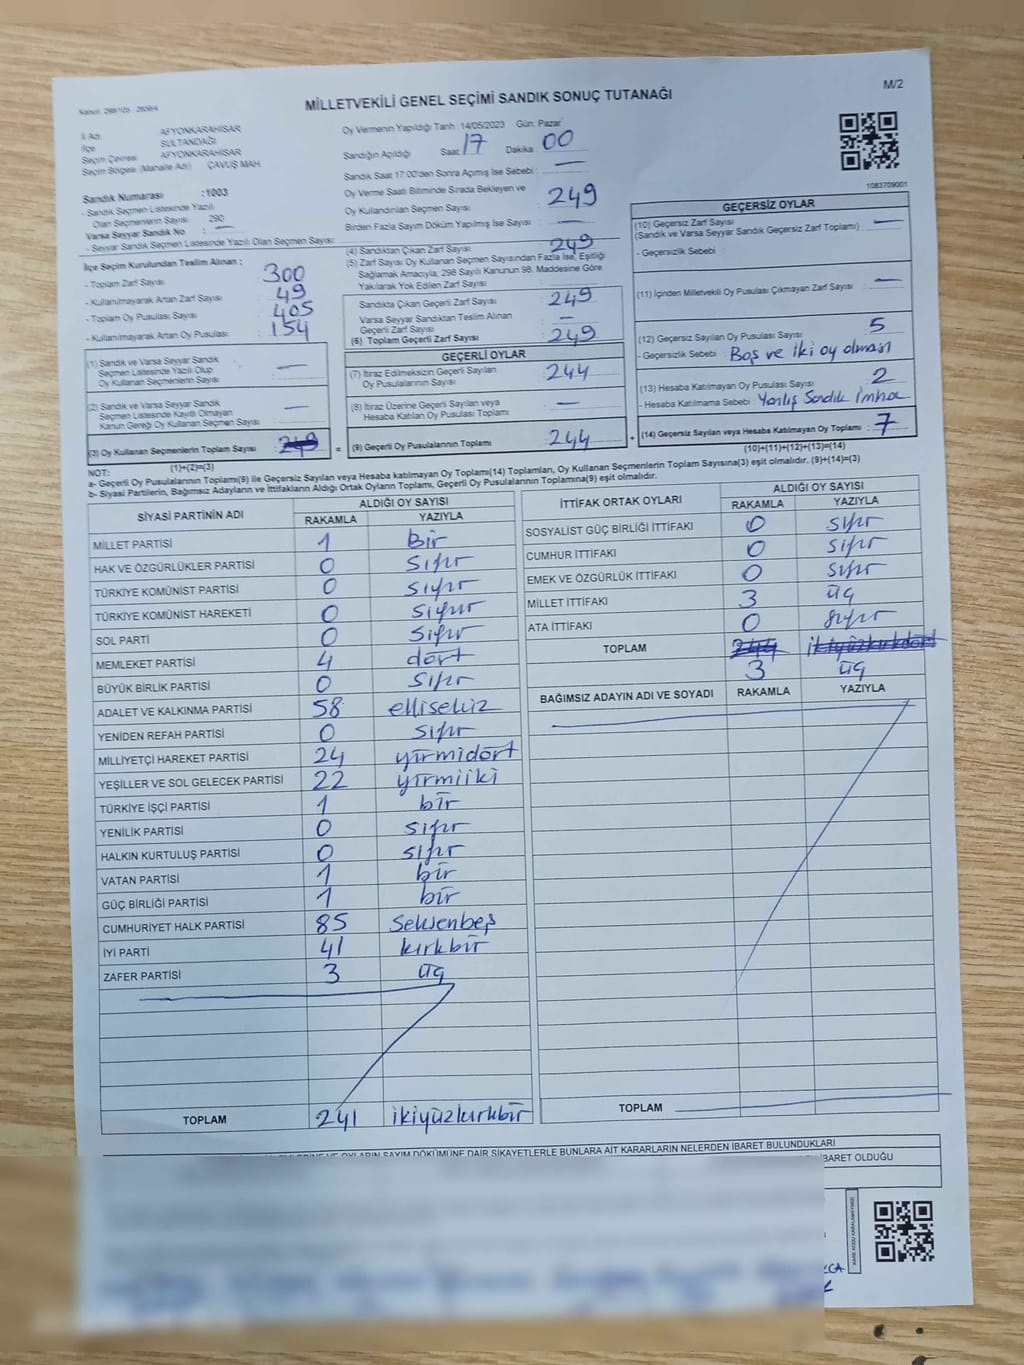 Kanun: 298/105 , 2839/4
MİLLETVEKİLİ GENEL SEÇİMİ SANDIK SONUÇ TUTANAĞI
M/2
İl Adı AFYONKARAHİSAR
İlçe SULTANDAĞI
Seçim Çevresi AFYONKARAHİSAR
Seçim Bölgesi (Mahalle Adı) ÇAVUŞ MAH.
Oy Vermenin Yapıldığı Tarih :14/05/2023 Gün: Pazar
Sandığın Açıldığı Saat: 17 Dakika: 00
Sandık Saat 17:00'den Sonra Açımış İse Sebebi : —
Oy Verme Saati Bitiminde Sırada Bekleyen ve
Oy Kullandırılan Seçmen Sayısı : 249
Birden Fazla Sayım Döküm Yapılmış İse Sayısı : —
1083709001
Sandık Numarası :1003
- Sandık Seçmen Listesinde Yazılı
Olan Seçmenlerin Sayısı : 290
Varsa Seyyar Sandık No : —
- Seyyar Sandık Seçmen Listesinde Yazılı Olan Seçmen Sayısı:
İlçe Seçim Kurulundan Teslim Alınan :
- Toplam Zarf Sayısı : 300
- Kullanılmayarak Artan Zarf Sayısı : 49
- Toplam Oy Pusulası Sayısı : 405
- Kullanılmayarak Artan Oy Pusulası : 154
(1) Sandık ve Varsa Seyyar Sandık
Seçmen Listesinde Yazılı Olup
Oy Kullanan Seçmenlerin Sayısı : —
(2) Sandık ve Varsa Seyyar Sandık
Seçmen Listesinde Kayıtlı Olmayan
Kanun Gereği Oy Kullanan Seçmen Sayısı : —
(3) Oy Kullanan Seçmenlerin Toplam Sayısı : 249 =
(1)+(2)=(3)
(4) Sandıktan Çıkan Zarf Sayısı : 249
(5) Zarf Sayısı, Oy Kullanan Seçmen Sayısından Fazla İse, Eşitliği
Sağlamak Amacıyla, 298 Sayılı Kanunun 98. Maddesine Göre
Yakılarak Yok Edilen Zarf Sayısı :
Sandıkta Çıkan Geçerli Zarf Sayısı : 249
Varsa Seyyar Sandıktan Teslim Alınan
Geçerli Zarf Sayısı : —
(6) Toplam Geçerli Zarf Sayısı : 249
GEÇERLİ OYLAR
(7) İtiraz Edilmeksizin Geçerli Sayılan
Oy Pusulalarının Sayısı : 244
(8) İtiraz Üzerine Geçerli Sayılan veya
Hesaba Katılan Oy Pusulası Toplamı : —
(9) Geçerli Oy Pusulalarının Toplamı : 244 +
GEÇERSİZ OYLAR
(10) Geçersiz Zarf Sayısı
(Sandık ve Varsa Seyyar Sandık Geçersiz Zarf Toplamı) : —
- Geçersizlik Sebebi :
(11) İçinden Milletvekili Oy Pusulası Çıkmayan Zarf Sayısı : —
(12) Geçersiz Sayılan Oy Pusulası Sayısı : 5
- Geçersizlik Sebebi : Boş ve iki oy olması
(13) Hesaba Katılmayan Oy Pusulası Sayısı : 2
- Hesaba Katılmama Sebebi : Yanlış Sandık imha
(14) Geçersiz Sayılan veya Hesaba Katılmayan Oy Toplamı : 7
(10)+(11)+(12)+(13)=(14)
NOT:
a- Geçerli Oy Pusulalarının Toplamı(9) ile Geçersiz Sayılan veya Hesaba katılmayan Oy Toplamı(14) Toplamları, Oy Kullanan Seçmenlerin Toplam Sayısına(3) eşit olmalıdır. (9)+(14)=(3)
b- Siyasi Partilerin, Bağımsız Adayların ve İttifakların Aldığı Ortak Oyların Toplamı, Geçerli Oy Pusulalarının Toplamına(9) eşit olmalıdır.
SİYASİ PARTİNİN ADI ALDIĞI OY SAYISI
RAKAMLA YAZIYLA
MİLLET PARTİSİ 1 Bir
HAK VE ÖZGÜRLÜKLER PARTİSİ 0 sıfır
TÜRKİYE KOMÜNİST PARTİSİ 0 sıfır
TÜRKİYE KOMÜNİST HAREKETİ 0 sıfır
SOL PARTİ 0 sıfır
MEMLEKET PARTİSİ 4 dört
BÜYÜK BİRLİK PARTİSİ 0 sıfır
ADALET VE KALKINMA PARTİSİ 58 ellisekiz
YENİDEN REFAH PARTİSİ 0 sıfır
MİLLİYETÇİ HAREKET PARTİSİ 24 yirmidört
YEŞİLLER VE SOL GELECEK PARTİSİ 22 yirmiiki
TÜRKİYE İŞÇİ PARTİSİ 1 bir
YENİLİK PARTİSİ 0 sıfır
HALKIN KURTULUŞ PARTİSİ 0 sıfır
VATAN PARTİSİ 1 bir
GÜÇ BİRLİĞİ PARTİSİ 1 bir
CUMHURİYET HALK PARTİSİ 85 Seksenbeş
İYİ PARTİ 41 kırkbir
ZAFER PARTİSİ 3 üç
TOPLAM 241 ikiyüzkırkbir
İTTİFAK ORTAK OYLARI ALDIĞI OY SAYISI
RAKAMLA YAZIYLA
SOSYALİST GÜÇ BİRLİĞİ İTTİFAKI 0 sıfır
CUMHUR İTTİFAKI 0 sıfır
EMEK VE ÖZGÜRLÜK İTTİFAKI 0 sıfır
MİLLET İTTİFAKI 3 üç
ATA İTTİFAKI 0 sıfır
TOPLAM 244 ikiyüzkırkdört
3 üç
BAĞIMSIZ ADAYIN ADI VE SOYADI RAKAMLA YAZIYLA
TOPLAM
OYLARIN SAYIM DÖKÜMÜNE DAİR ŞİKAYETLERLE BUNLARA AİT KARARLARIN NELERDEN İBARET BULUNDUKLARI
İBARET OLDUĞU